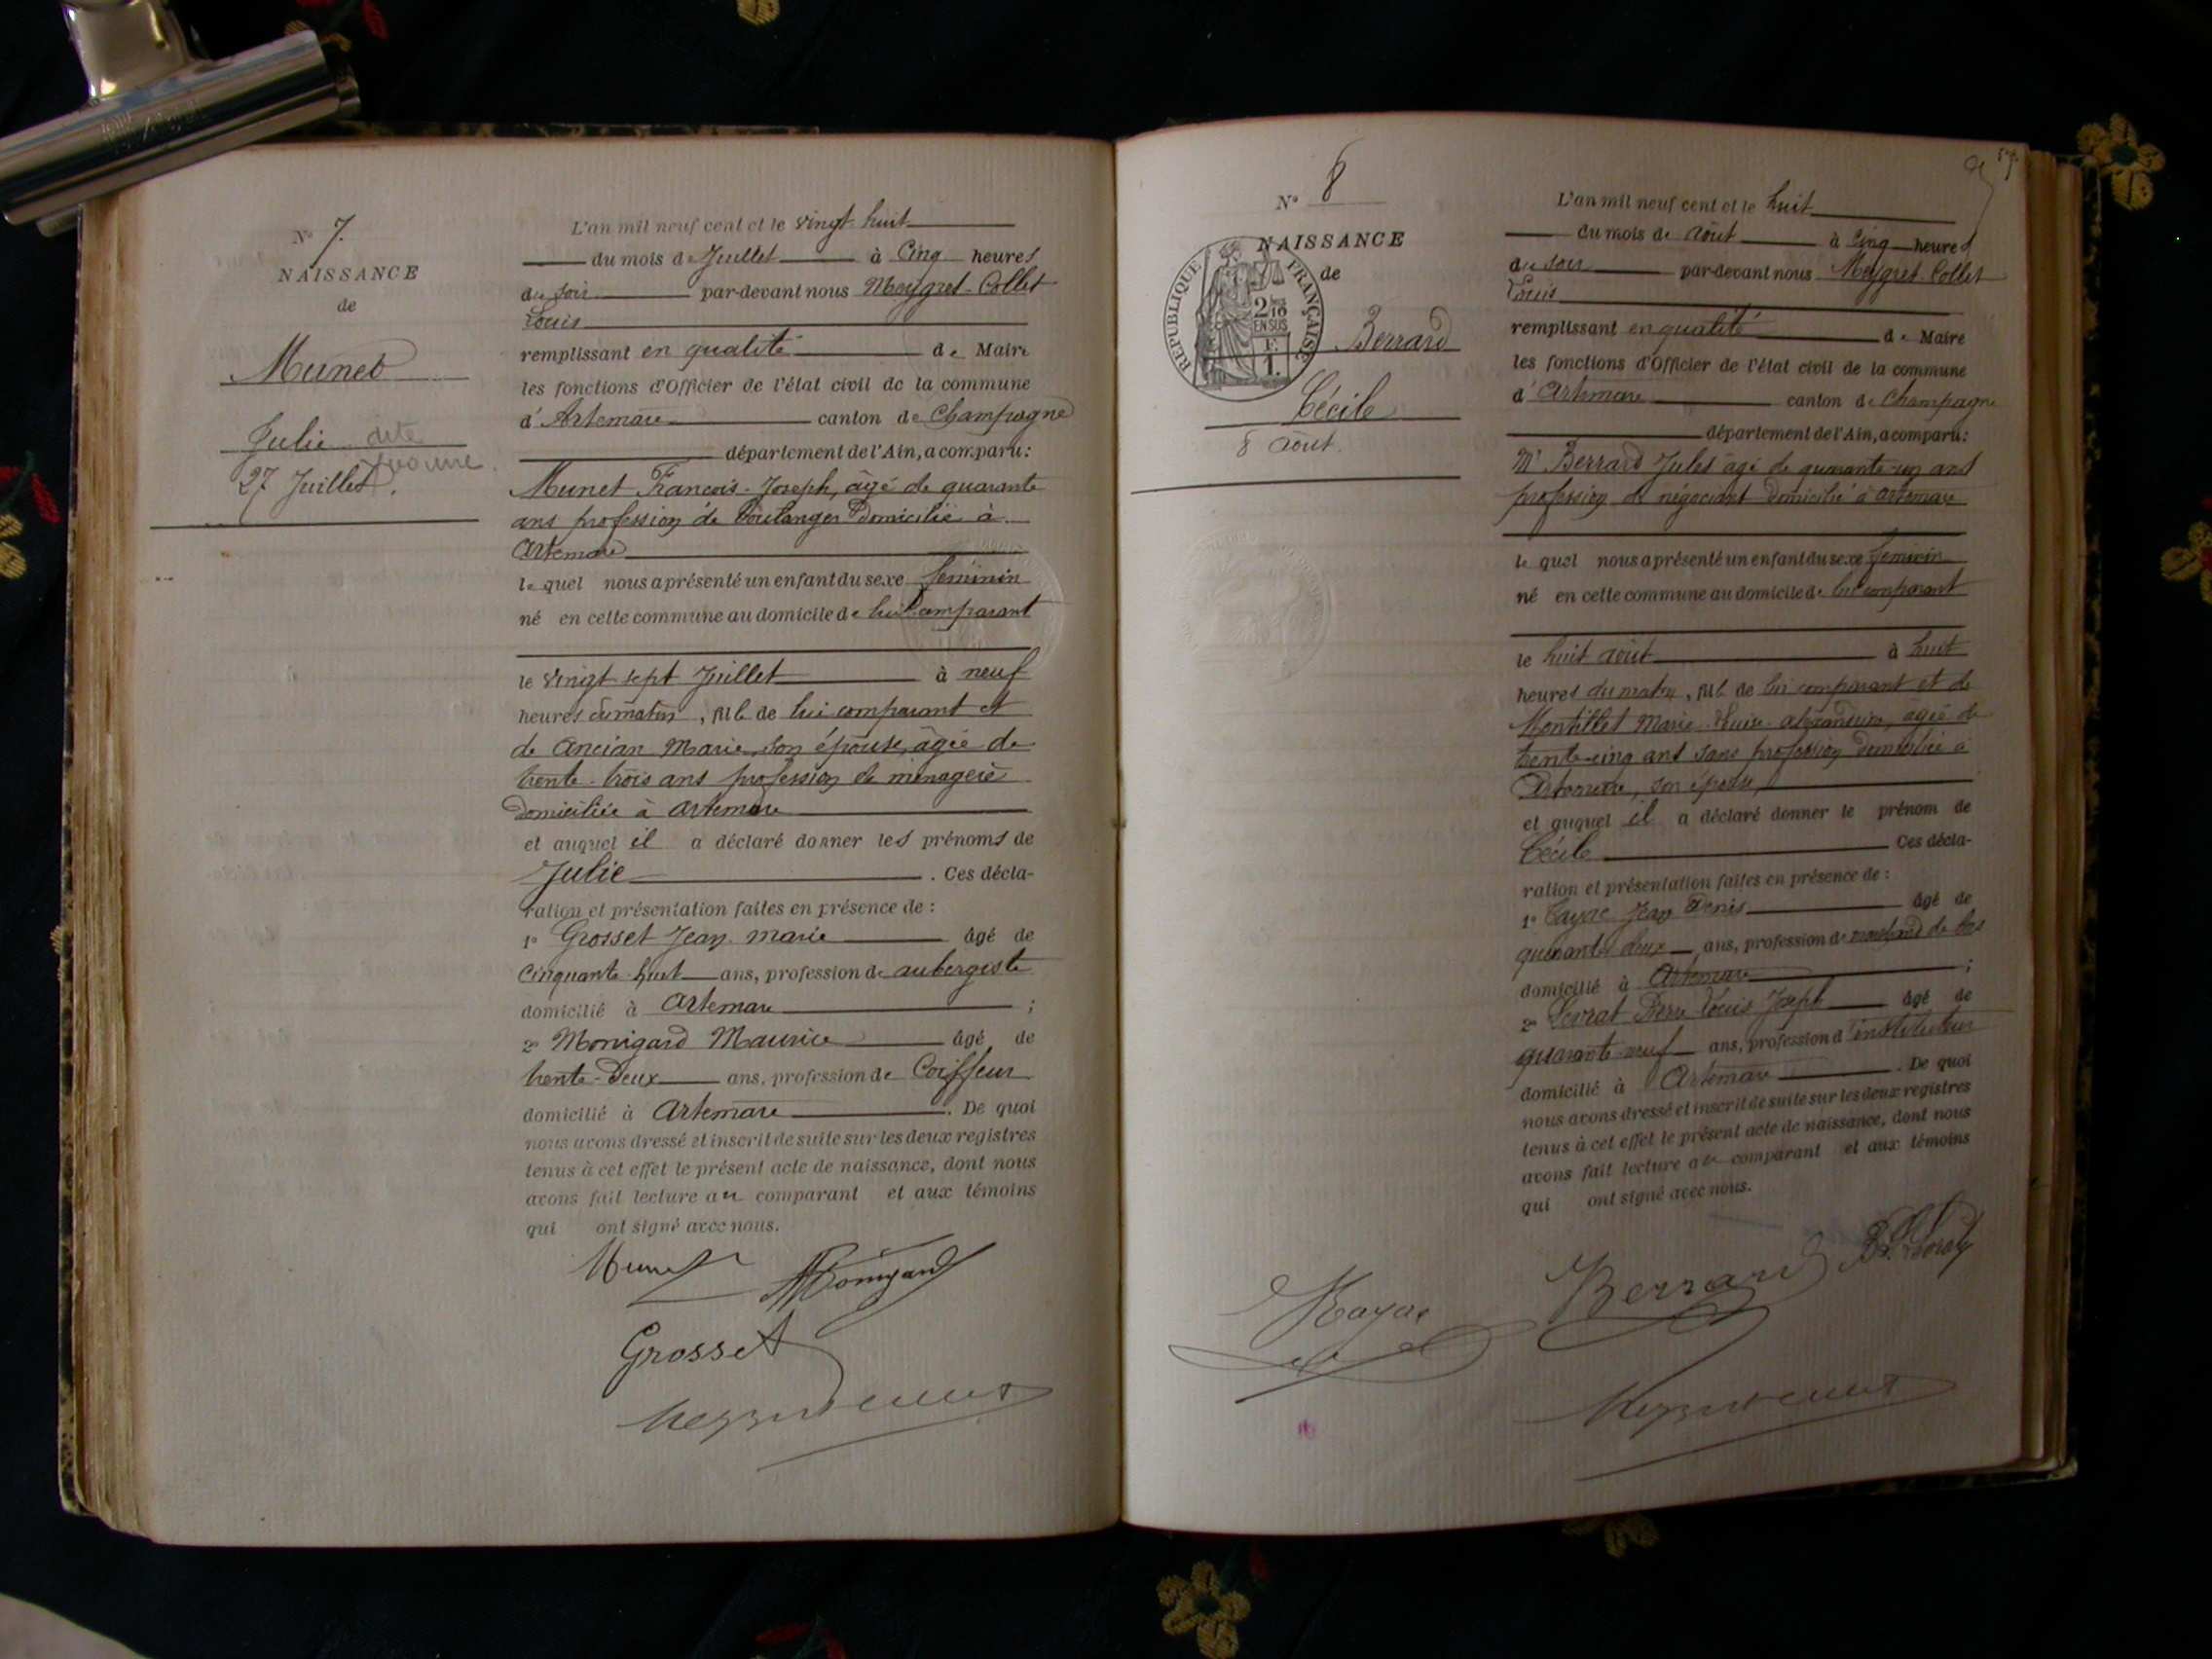 N° 7.
NAISSANCE
de
Munet
Julie dite
Yvonne.
27 Juillet.
L'an mil neuf cent et le vingt-huit
du mois de Juillet à Cinq heures
du soir par-devant nous Meygret-Collet
Louis
remplissant en qualité de Maire
les fonctions d'Officier de l'état civil de la commune
d'Artemare canton de Champagne
département de l'Ain, a comparu:
Munet François-Joseph, âgé de quarante
ans profession de boulanger domicilié à
Artemare
lequel nous a présenté un enfant du sexe féminin
né en cette commune au domicile de lui comparant
le vingt sept Juillet à neuf
heures du matin, fille de lui comparant et
de Ancian Marie, son épouse, âgée de
trente-trois ans profession de ménagère
domiciliée à Artemare
et auquel il a déclaré donner les prénoms de
Julie. Ces décla-
ration et présentation faites en présence de :
1° Grosset Jean-marie âgé de
Cinquante-huit ans, profession de aubergiste
domicilié à Artemare ;
2° Monigard Maurice âgé de
trente-deux ans, profession de Coiffeur
domicilié à Artemare. De quoi
nous avons dressé et inscrit de suite sur les deux registres
tenus à cet effet le présent acte de naissance, dont nous
avons fait lecture au comparant et aux témoins
qui ont signé avec nous.
Munet Monigard
Grosset
N° 8
NAISSANCE
de
REPUBLIQUE FRANÇAISE
2/10
EN SUS
F.
1.
Berrard
Cécile
8 août.
57
L'an mil neuf cent et le huit
du mois de août à Cinq heures
du soir par-devant nous Meygret-Collet
Louis
remplissant en qualité de Maire
les fonctions d'Officier de l'état civil de la commune
d'Artemare canton de Champagne
département de l'Ain, a comparu:
Mr Berrard Jules âgé de quarante-un ans
profession de négociant domicilié à Artemare
lequel nous a présenté un enfant du sexe féminin
né en cette commune au domicile de lui comparant
le huit août à huit
heures du matin, fille de lui comparant et de
Montillet Marie-Louise-Alexandrine, âgée de
trente-cinq ans sans profession domiciliée à
Artemare, son épouse,
et auquel il a déclaré donner le prénom de
Cécile Ces décla-
ration et présentation faites en présence de :
1° Jean Denis âgé de
quarante-deux ans, profession de marchand de bois
domicilié à Artemare ;
2° Pierre Louis Joseph âgé de
quarante-neuf ans, profession d'instituteur
domicilié à Artemare. De quoi
nous avons dressé et inscrit de suite sur les deux registres
tenus à cet effet le présent acte de naissance, dont nous
avons fait lecture au comparant et aux témoins
qui ont signé avec nous.
Berrard